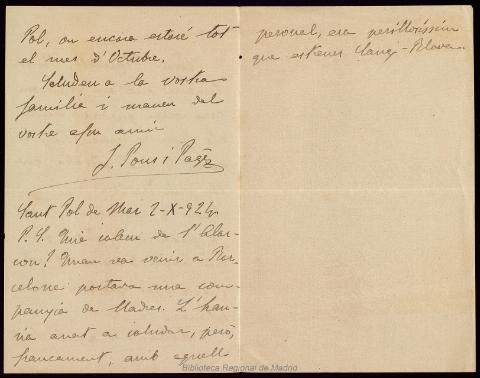 Pol, on encara estaré tot
el mes d'Octubre.
Saludeu a la vostra
família i maneu del
vostre afm amic
J. Pous i Pagès
Sant Pol de Mar 2-X-924
P.S. Què sabem de l'Alar-
con? Quan va venir a Bar-
celona portava una com-
panyia de Madrid. L'hau-
ria anat a saludar, però,
francament, amb aquell
personal, era perillosíssim
que estiguer
Biblioteca Regional de Madrid